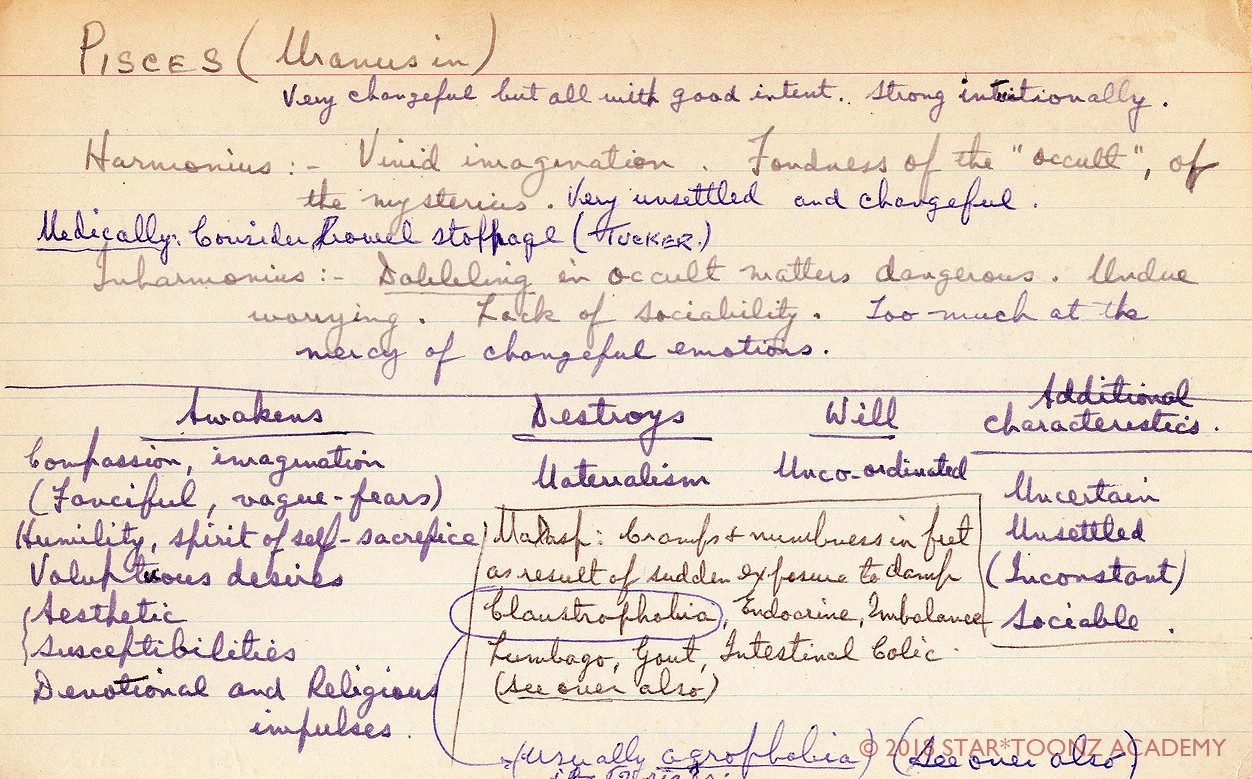 PISCES (Uranus in)
Very changeful but all with good intent. Strong intuitionally.
Harmonius :- Vivid imagination. Fondness of the "occult", of
the mysterius. Very unsettled and changeful.
Medically: Consider Bowel stoppage (TUCKER.)
Inharmonius :- Dabbling in occult matters dangerous. Undue
worrying. Lack of sociability. Too much at the
mercy of changeful emotions.
Awakens
Compassion, imagination
(Fanciful, vague-fears)
Humility, spirit of self-sacrefice
Voluptuous desires
Aesthetic
susceptibilities
Devotional and Religious
impulses.
Destroys
Materialism
Will
Unco-ordinated
Additional
characteristics.
Uncertain
Unsettled
(Inconstant)
Sociable.
Cramps & numbness in feet
as result of sudden exposure to damp
Claustrophobia, Endocrine, Imbalance
Lumbago, Gout, Intestinal Colic.
(See over also)
(usually agrophobia) (See over also)
© 2018 STAR*TOONZ ACADEMY